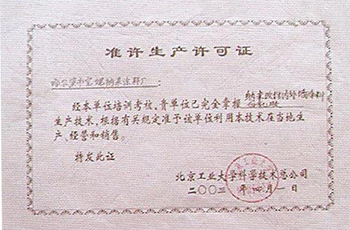 准许生产许可证
哈尔滨市宏旭纳米涂料厂:
经本单位培训考核,贵单位已完全掌握纳米改性内外墙涂料
生产技术,根据有关规定准予该单位利用本技术在当地生
产、经营和销售。
特发此证
北京工业大学科学技术总公司
二〇〇三年四月一日